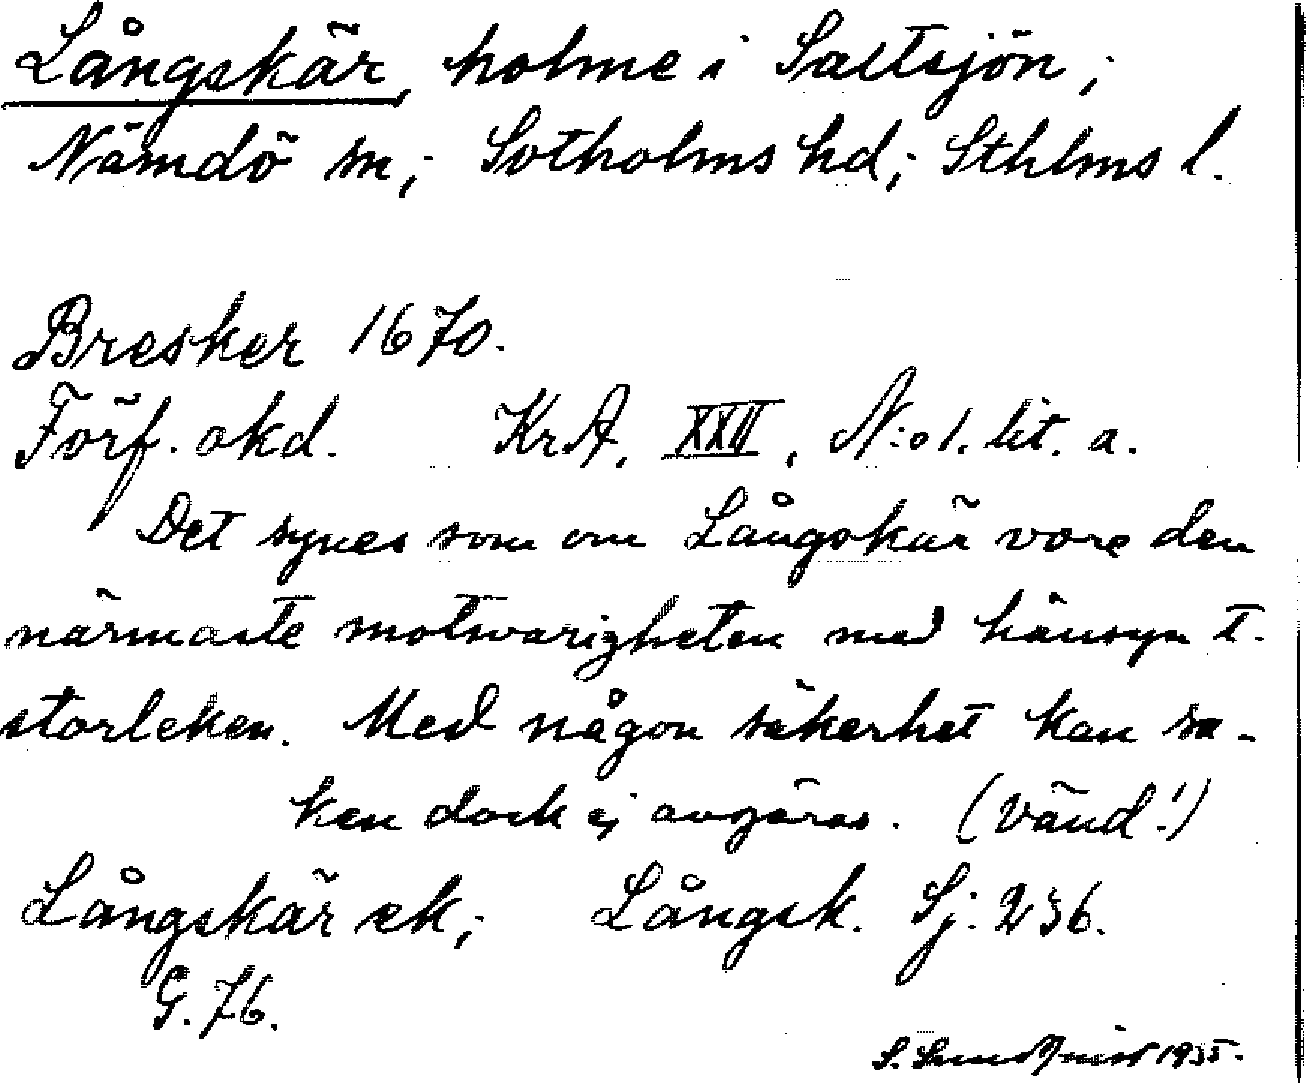 Långskär, holme i Saltsjön;
Nämdö sn; Sotholms hd; Sthlms l.
Bresker 1670.
Förf. okd. KrA, XXII, N:o 1. lit. a.
Det synes som om Långskär vore den
närmaste motsvarigheten med hänsyn t.
storleken. Med någon säkerhet kan sa-
ken dock ej avgöras. (Vänd!)
Långskär ek; Långsk. Sj: 236.
G. 76.
S. Sundquist 1935.